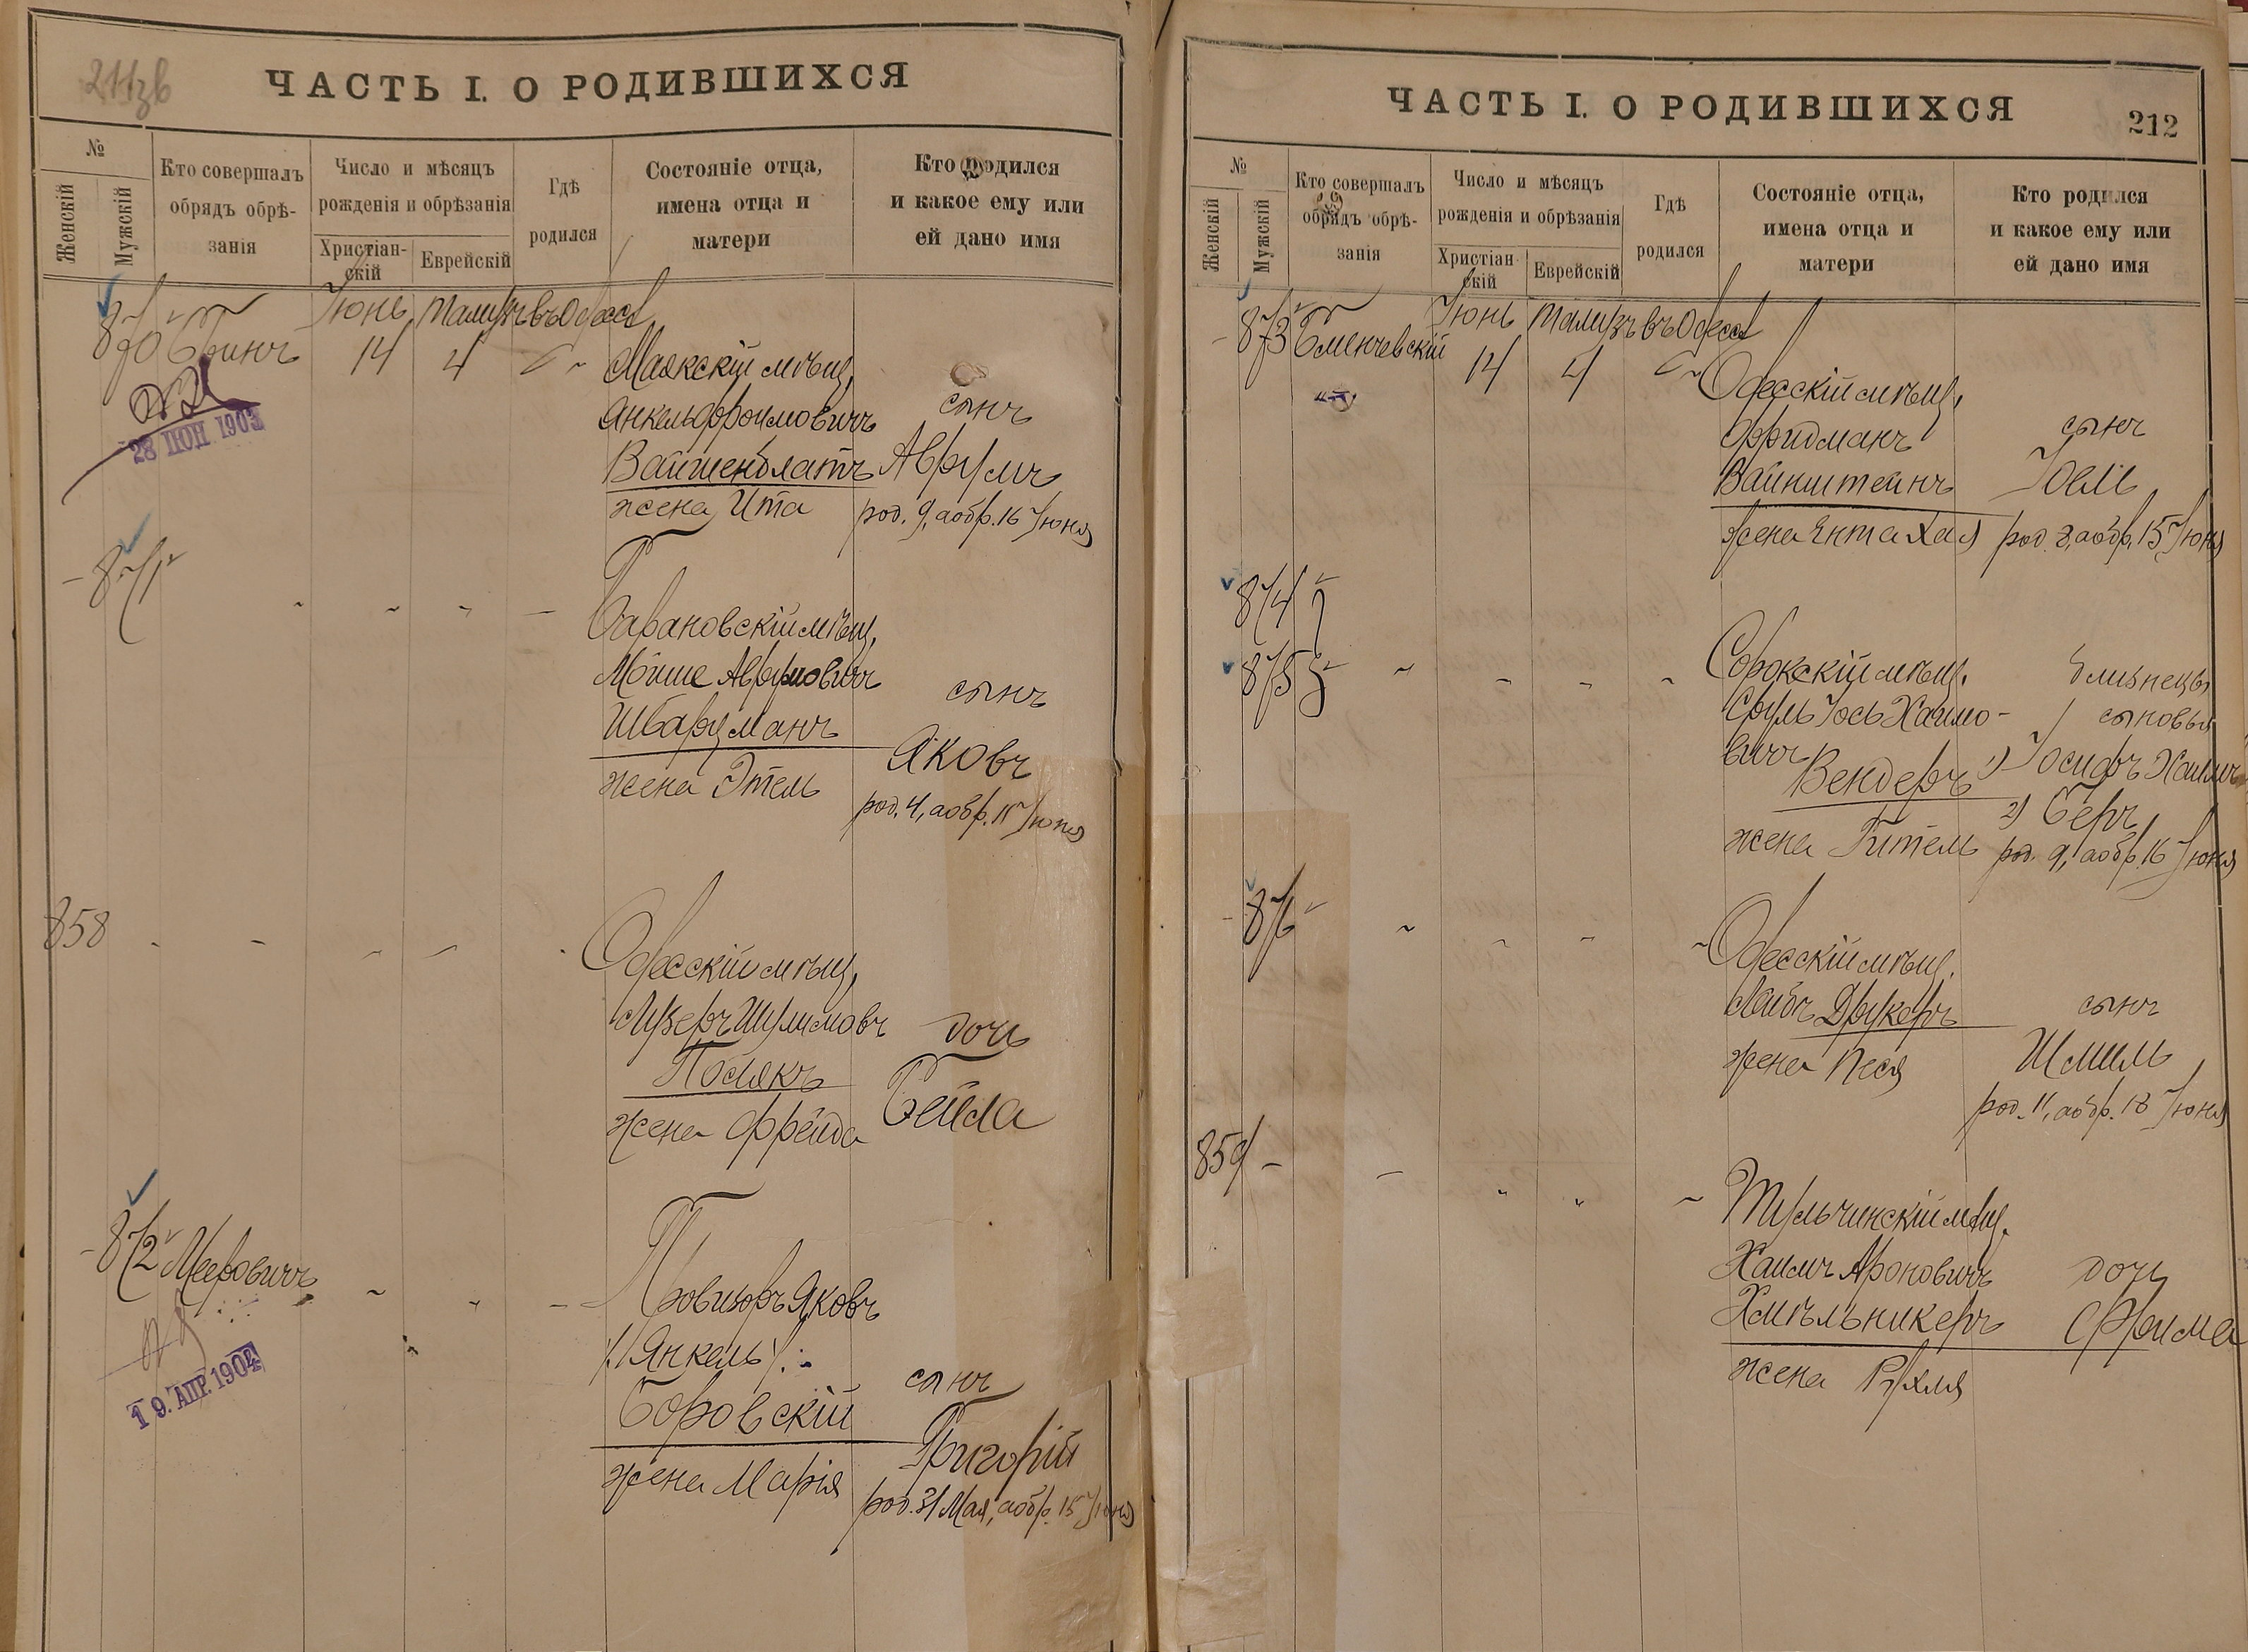 211зв
ЧАСТЬ I. О РОДИВШИХСЯ
№
Женскій
Мужскій
Кто совершалъ
обрядъ обрѣ-
занія
Число и мѣсяцъ
рожденія и обрѣзанія
Христіан-
скій
Еврейскій
Гдѣ
родился
Состояніе отца,
имена отца и
матери
Кто родился
и какое ему или
ей дано имя
Іюнь Тамузъ въ Одессѣ
870 14 4
Маякскій мѣщ.
Янкель Фроимовичъ
Вайшенблатъ
жена Ита
сынъ
Аврумъ
род. 9, а обр. 16 Іюня
28 ІЮН 1903
871
Барановскій мѣщ.
Мойше Аврумовичъ
Шварцманъ
жена Этель
сынъ
Яковъ
род. 4, а обр. 11 Іюня
858
Одесскій мѣщ.
Лузеръ Шулимовъ
Полякъ
жена Фрейда
дочь
Бейла
872 Мееровичъ
Провизоръ Яковъ
/Янкель/
Боровскій
жена Марія
сынъ
Григорій
род. 31 Мая, а обр. 15 Іюня
19. АПР. 1904
ЧАСТЬ I. О РОДИВШИХСЯ
212
№
Женскій
Мужскій
Кто совершалъ
обрядъ обрѣ-
занія
Число и мѣсяцъ
рожденія и обрѣзанія
Христіан-
скій
Еврейскій
Гдѣ
родился
Состояніе отца,
имена отца и
матери
Кто родился
и какое ему или
ей дано имя
Іюнь Тамузъ въ Одессѣ
873 14 4
Одесскій мѣщ.
Фридманъ
Вайнштейнъ
жена Ента Хая
сынъ
Іоель
род. 8, а обр. 15 Іюня
874
875
Сорокскій мѣщ.
Сруль Іось Хаимо-
вичъ
Вендеръ
жена Гитель
близнецы
сыновья
1) Іосифъ Хаимъ
2) Беръ
род. 9, а обр. 16 Іюня
876
Одесскій мѣщ.
Лейбъ Друкеръ
жена Песя
сынъ
Шмиль
род. 11, а обр. 18 Іюня
859
Тульчинскій мѣщ.
Хаимъ Ароновичъ
Хмѣльникеръ
жена Рухля
дочь
Фрима